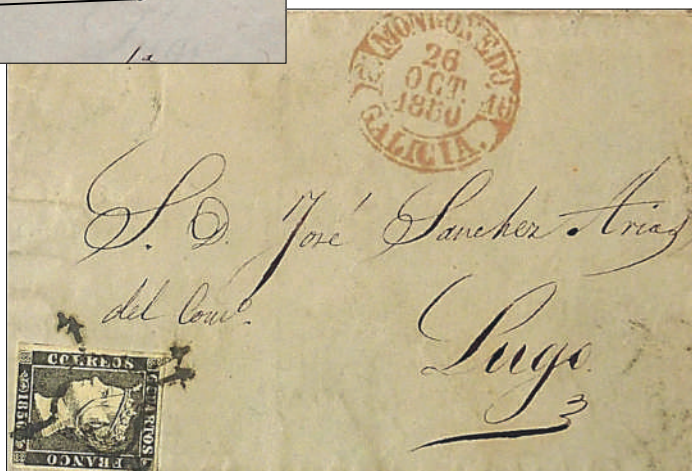 1ª
MONDOÑEDO
26
OCT
1850
16
GALICIA.
S. D. José Sanchez Arias
del Comº.
Lugo
CORREOS
CUARTOS
1850
FRANCO